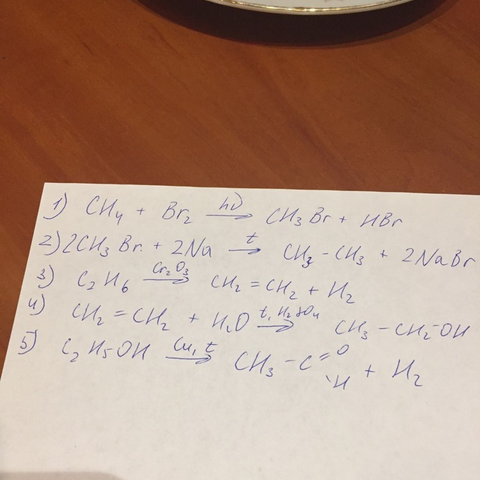 1) CH₄ + Br₂ —hν→ CH₃Br + HBr
2) 2CH₃Br + 2Na —t→ CH₃-CH₃ + 2NaBr
3) C₂H₆ —Cr₂O₃→ CH₂=CH₂ + H₂
4) CH₂=CH₂ + H₂O —t, H₂SO₄→ CH₃-CH₂-OH
5) C₂H₅OH —Cu, t→ CH₃-C(=O)-H + H₂